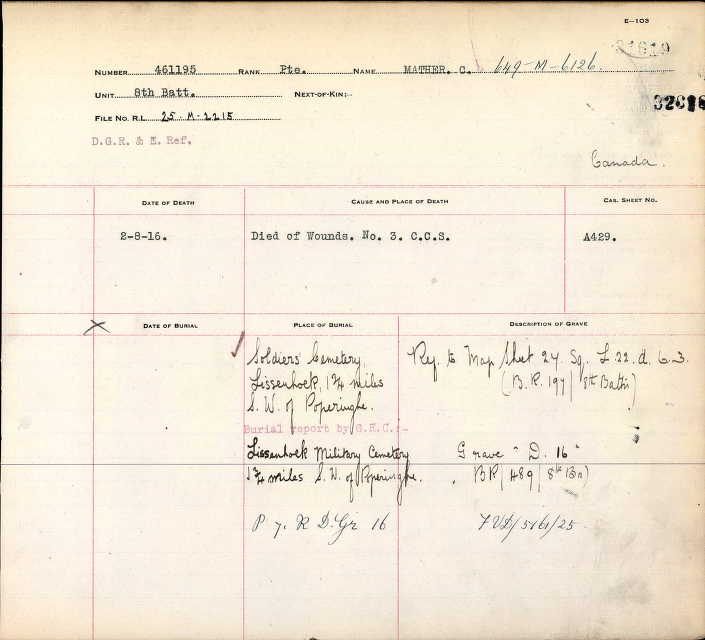 E-103
31619
NUMBER 461195 RANK Pte. NAME MATHER. C. 649-M-6126.
UNIT 8th Batt. NEXT-OF-KIN:-
FILE NO. R.L. 25-M-2215
D.G.R. & E. Ref.
Canada.
DATE OF DEATH CAUSE AND PLACE OF DEATH CAS. SHEET NO.
2-8-16. Died of Wounds. No. 3. C.C.S. A429.
DATE OF BURIAL PLACE OF BURIAL DESCRIPTION OF GRAVE
Soldiers Cemetery, Ref. to Map Sheet 27. Sq. L 22. d. 6.3.
Lissenhoek, 1¾ miles (B.R. 197/ 8th Battn)
S.W. of Poperinghe.
Burial report by G.E.C.:-
Lissenhoek Military Cemetery Grave "D. 16"
1¾ miles S.W. of Poperinghe. BR/489/8th Bn)
P 7. R D. Gr 16